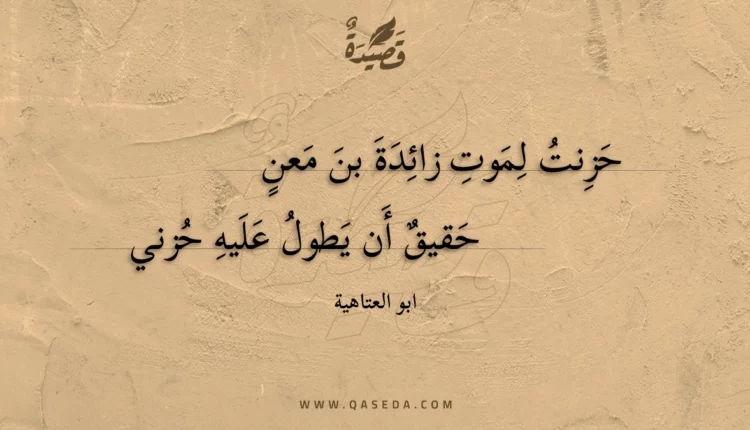 قَصِيدَةٌ
حَزِنتُ لِمَوتِ زائِدَةَ بنَ مَعنٍ
حَقيقٌ أَن يَطولُ عَلَيهِ حُزني
ابو العتاهية
WWW.QASEDA.COM